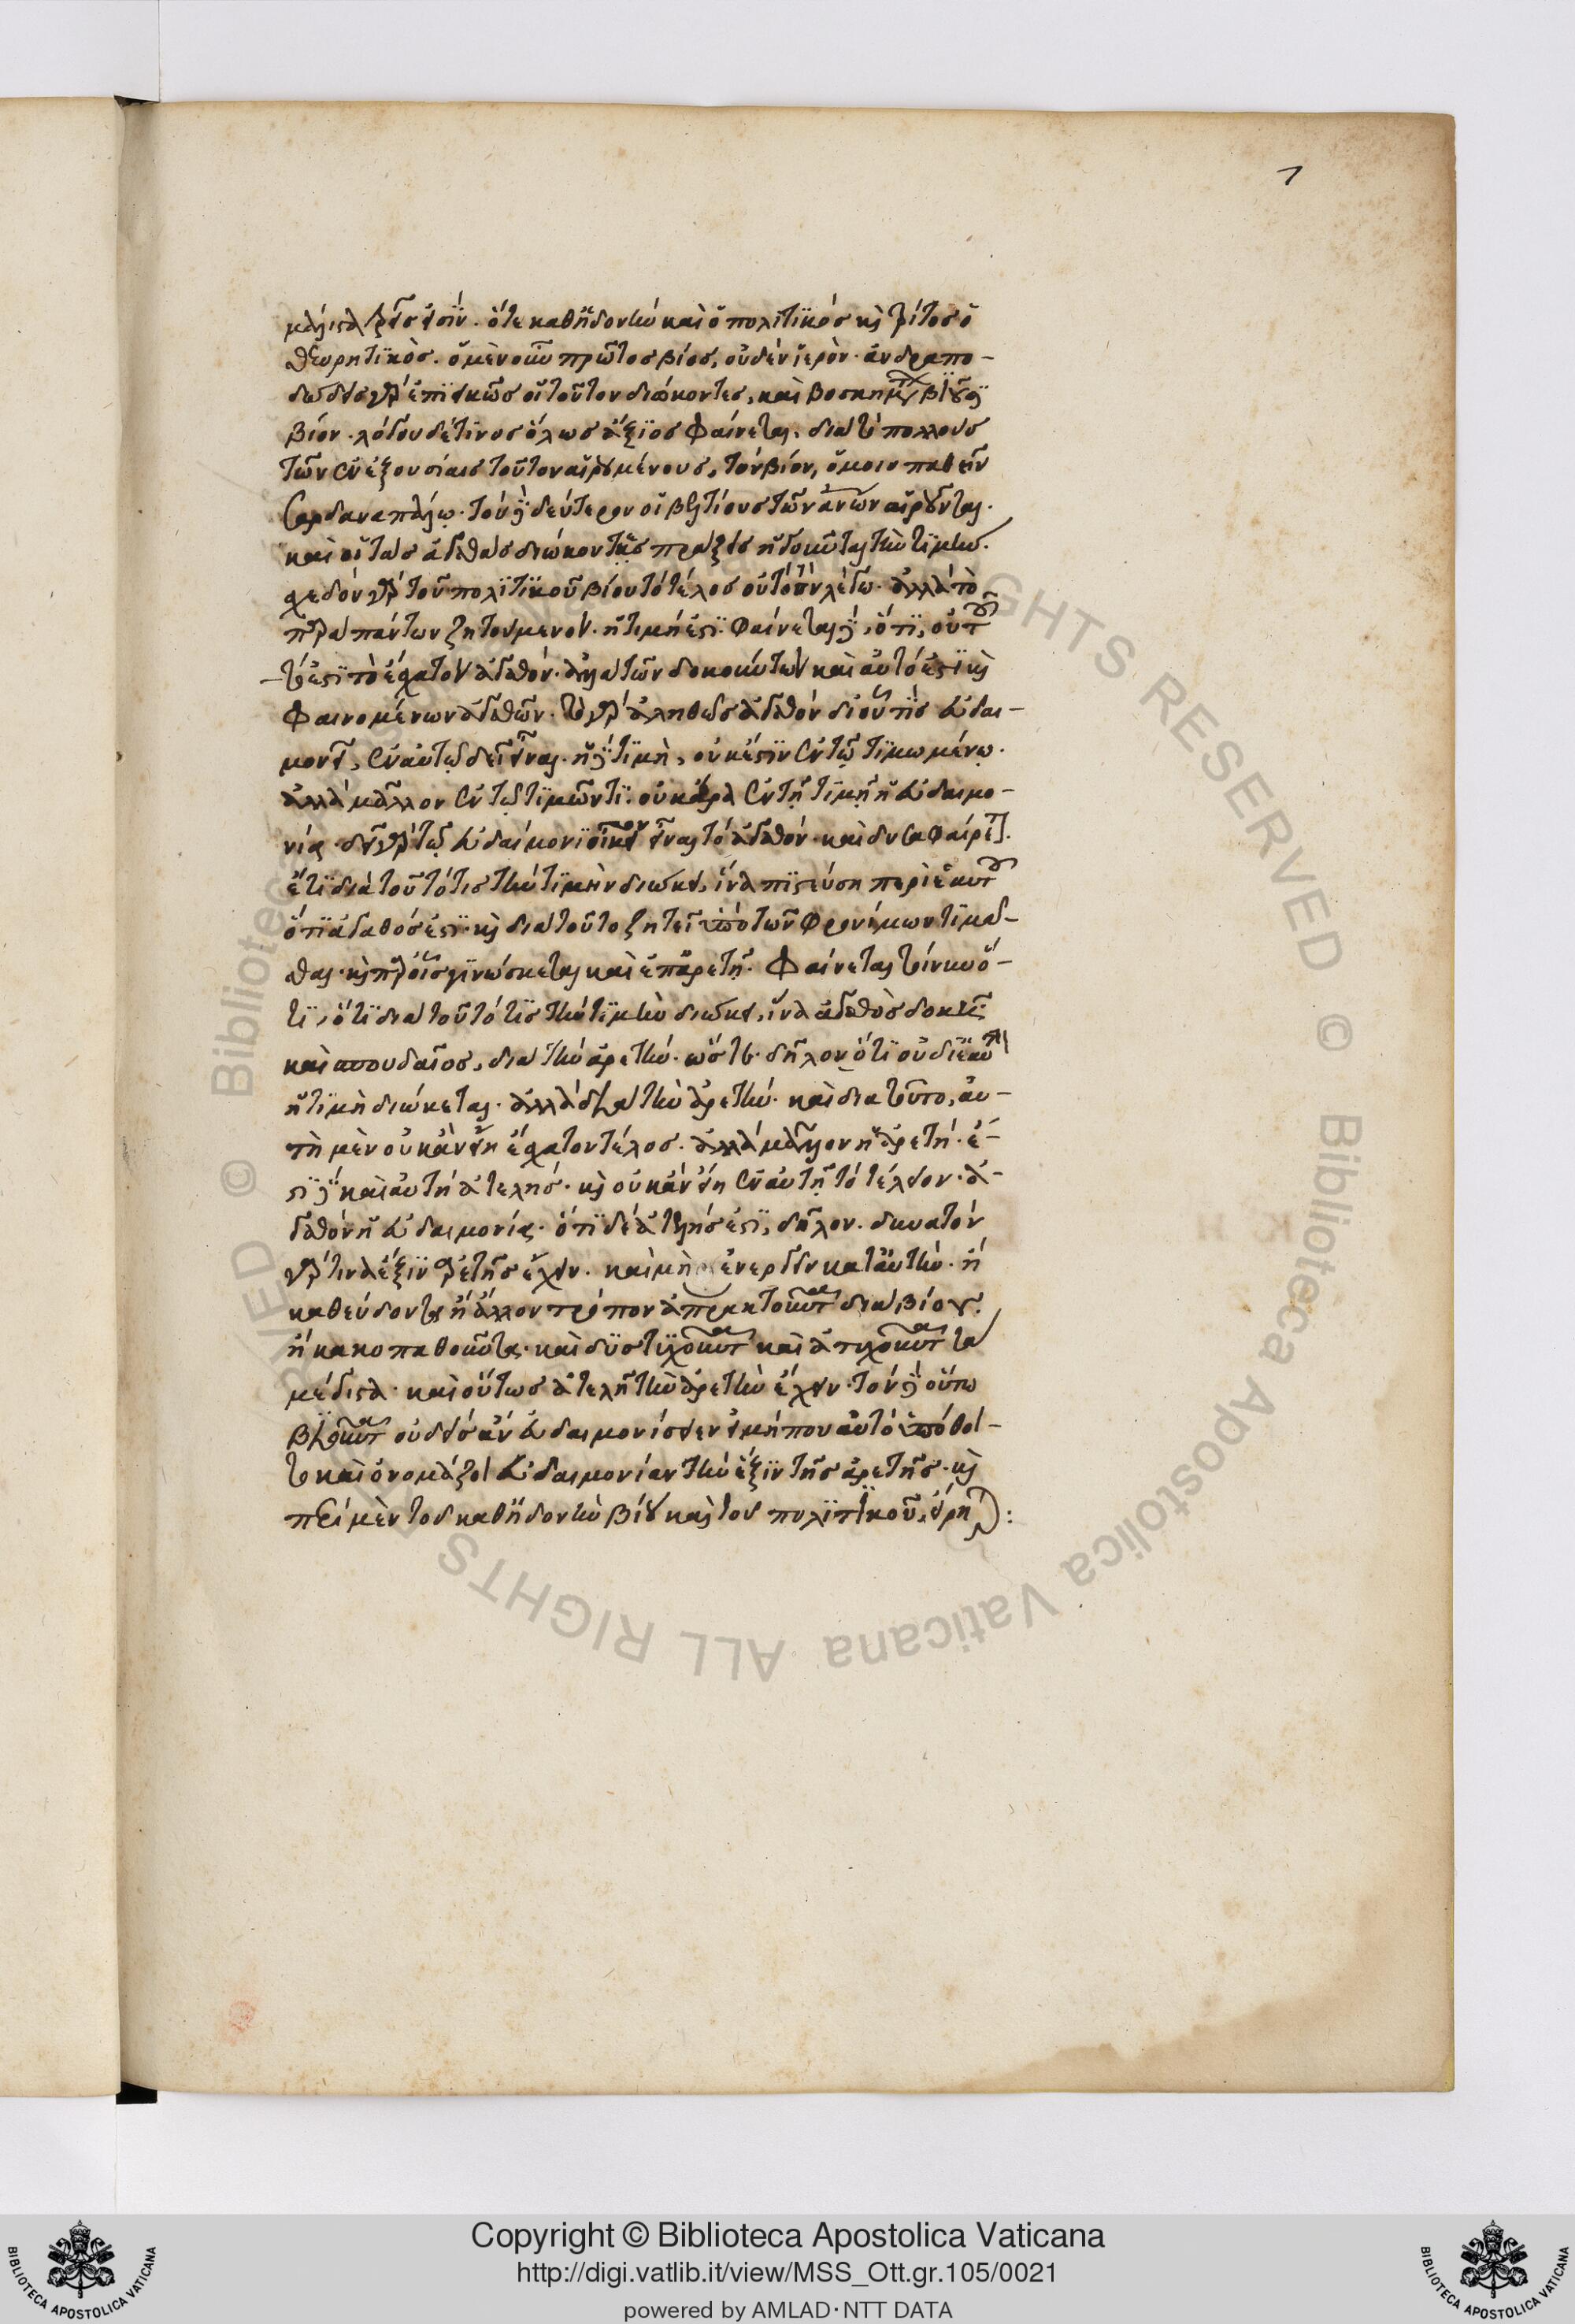 7
μάλιστα τρεῖς εἰσίν. ὅτε καθ' ἡδονὴν καὶ ὁ πολιτικός καὶ τρίτος ὁ
θεωρητικὸς. ὁ μὲν οὖν πρῶτος βίος, οὐδὲν ἱερὸν. ἀνδραπο-
δώδεις γὰρ ἐπιεικῶς οἱ τοῦτον διώκοντες, καὶ βοσκημάτων βιοῦσι
βίον. λόγου δέ τινος ὅλως ἄξιος φαίνεται. διὰ τὸ πολλοὺς
τῶν ἐν ἐξουσίαις τοῦτον αἱρουμένους, τὸν βίον, ὁμοιοπαθεῖν
Σαρδαναπάλῳ. τὸν δὲ δεύτερον οἱ βελτίους τῶν ἀνων αἱροῦνται.
καὶ οἱ τὰς ἀγαθὰς διώκοντες πράξεις ἡγοῦνται τὴν τιμὴν.
σχεδὸν γὰρ τοῦ πολιτικοῦ βίου τὸ τέλος οὐ τοπν λέγω. ἀλλὰ τὸ
παρὰ πάντων ζητούμενον. ἡ τιμή ἐστι. φαίνεται δὲ, ὅτι, οὐ τοῦ-
τό ἐστι τὸ ἔσχατον ἀγαθόν. ἀλλὰ τῶν δοκούντων καὶ αὐτό ἐστι καὶ
φαινομένων ἀγαθῶν. τὸ γὰρ ἀληθῶς ἀγαθὸν δι' οὗ τις εὐδαι-
μονεῖ, ἐν αὐτῷ δεῖ εἶναι. ἡ δὲ τιμὴ, οὐκ ἔστιν ἐν τῷ τιμωμένῳ.
ἀλλὰ μᾶλλον ἐν τῷ τιμῶντι. οὐκ ἄρα ἐν τῇ τιμῇ ἡ εὐδαιμο-
νία. δεῖ γὰρ τῷ εὐδαίμονι οἰκεῖον εἶναι τὸ ἀγαθόν. καὶ δυσαφαίρετον.
ἔτι διὰ τοῦτό τις τὴν τιμὴν διώκει, ἵνα πιστεύσῃ περὶ ἑαυτοῦ
ὅτι ἀγαθός ἐστι. καὶ διὰ τοῦτο ζητεῖ ὑπὸ τῶν φρονίμων τιμᾶσ-
θαι. καὶ παρ' οἷς γινώσκεται καὶ ἐπ' ἀρετῇ. φαίνεται τοίνυν ὅ-
τι, ὅτι διὰ τοῦτό τις τὴν τιμὴν διώκει, ἵνα ἀγαθὸς δοκεῖ
καὶ σπουδαῖος, διὰ τὴν ἀρετήν. ὥστε δῆλον ὅτι οὐ δι' ἑαυτὴν
ἡ τιμὴ διώκεται. ἀλλὰ διὰ τὴν ἀρετήν. καὶ διὰ τοῦτο, αὐ-
τὴ μὲν οὐκ ἂν εἴη ἔσχατον τέλος. ἀλλὰ μᾶλλον ἡ ἀρετή. ἔ-
στι δὲ καὶ αὐτὴ ἀτελής. καὶ οὐκ ἂν εἴη ἐν αὐτῇ τὸ τέλειον. ἀ-
γαθὸν ἡ εὐδαιμονία. ὅτι δὲ ἀτελής ἐστι, δῆλον. δυνατὸν
γάρ τινα ἕξιν ἀρετῆς ἔχειν. καὶ μὴ ἐνεργεῖν κατ' αὐτήν. ἢ
καθεύδοντα ἢ ἄλλον τρόπον ἀπρακτοῦντα διὰ βίου.
ἢ κακοπαθοῦντα. καὶ δυστυχοῦντα καὶ ἀτυχοῦντα τὰ
μέγιστα. καὶ οὕτως ἀτελῆ τὴν ἀρετὴν ἔχειν. τὸν δὲ οὕτω
βιοῦντα οὐδεὶς ἂν εὐδαιμονίσειεν εἰ μή που αὐτὸ ὑπόθοι-
το καὶ ὀνομάζοι εὐδαιμονίαν τὴν ἕξιν τῆς ἀρετῆς. καὶ
περὶ μὲν τοῦ καθ' ἡδονὴν βίου καὶ τοῦ πολιτικοῦ, εἴρηται:
Copyright © Biblioteca Apostolica Vaticana
http://digi.vatlib.it/view/MSS_Ott.gr.105/0021
powered by AMLAD·NTT DATA
BIBLIOTECA APOSTOLICA VATICANA
BIBLIOTECA APOSTOLICA VATICANA
© Biblioteca Apostolica Vaticana ALL RIGHTS RESERVED